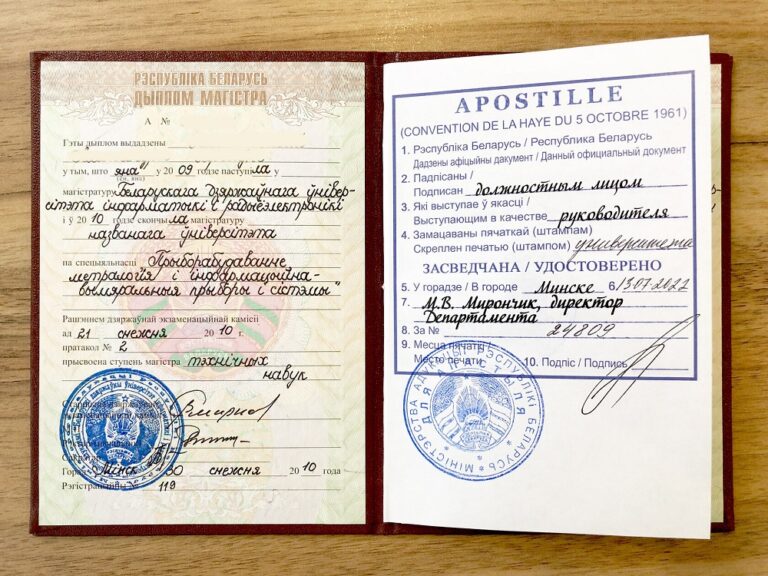 РЭСПУБЛІКА БЕЛАРУСЬ
ДЫПЛОМ МАГІСТРА
А №
Гэты дыплом выдадзены
у тым, што яна у 2009 годзе паступіла у
магістратуру Беларускага дзяржаўнага ўнівер-
сітэта інфарматыкі і радыёэлектронікі
і ў 2010 годзе скончыла магістратуру
названага ўніверсітэта
па спецыяльнасці "Прыборабудаванне,
метралогія і інфармацыйна-
вымяральныя прыборы і сістэмы"
Рашэннем дзяржаўнай экзаменацыйнай камісіі
ад 21 снежня 2010 г.
пратакол № 2
прысвоена ступень магістра тэхнічных
навук
Горад Мінск 30 снежня 2010 года
Рэгістрацыйны № 119
APOSTILLE
(CONVENTION DE LA HAYE DU 5 OCTOBRE 1961)
1. Рэспубліка Беларусь / Республика Беларусь
Дадзены афіцыйны дакумент / Данный официальный документ
2. Падпісаны /
Подписан должностным лицом
3. Які выступае ў якасці /
Выступающим в качестве руководителя
4. Замацаваны пячаткай (штампам)
Скреплен печатью (штампом) университета
ЗАСВЕДЧАНА / УДОСТОВЕРЕНО
5. У горадзе / В городе Минске 6. 13.07.2022
7. М.В. Мирончик, директор
Департамента
8. За № 24809
9. Месца пячаткі
Место печати 10. Подпіс / Подпись
МІНІСТЭРСТВА АДУКАЦЫІ РЭСПУБЛІКІ БЕЛАРУСЬ
ДЛЯ АПАСТЫЛЯ